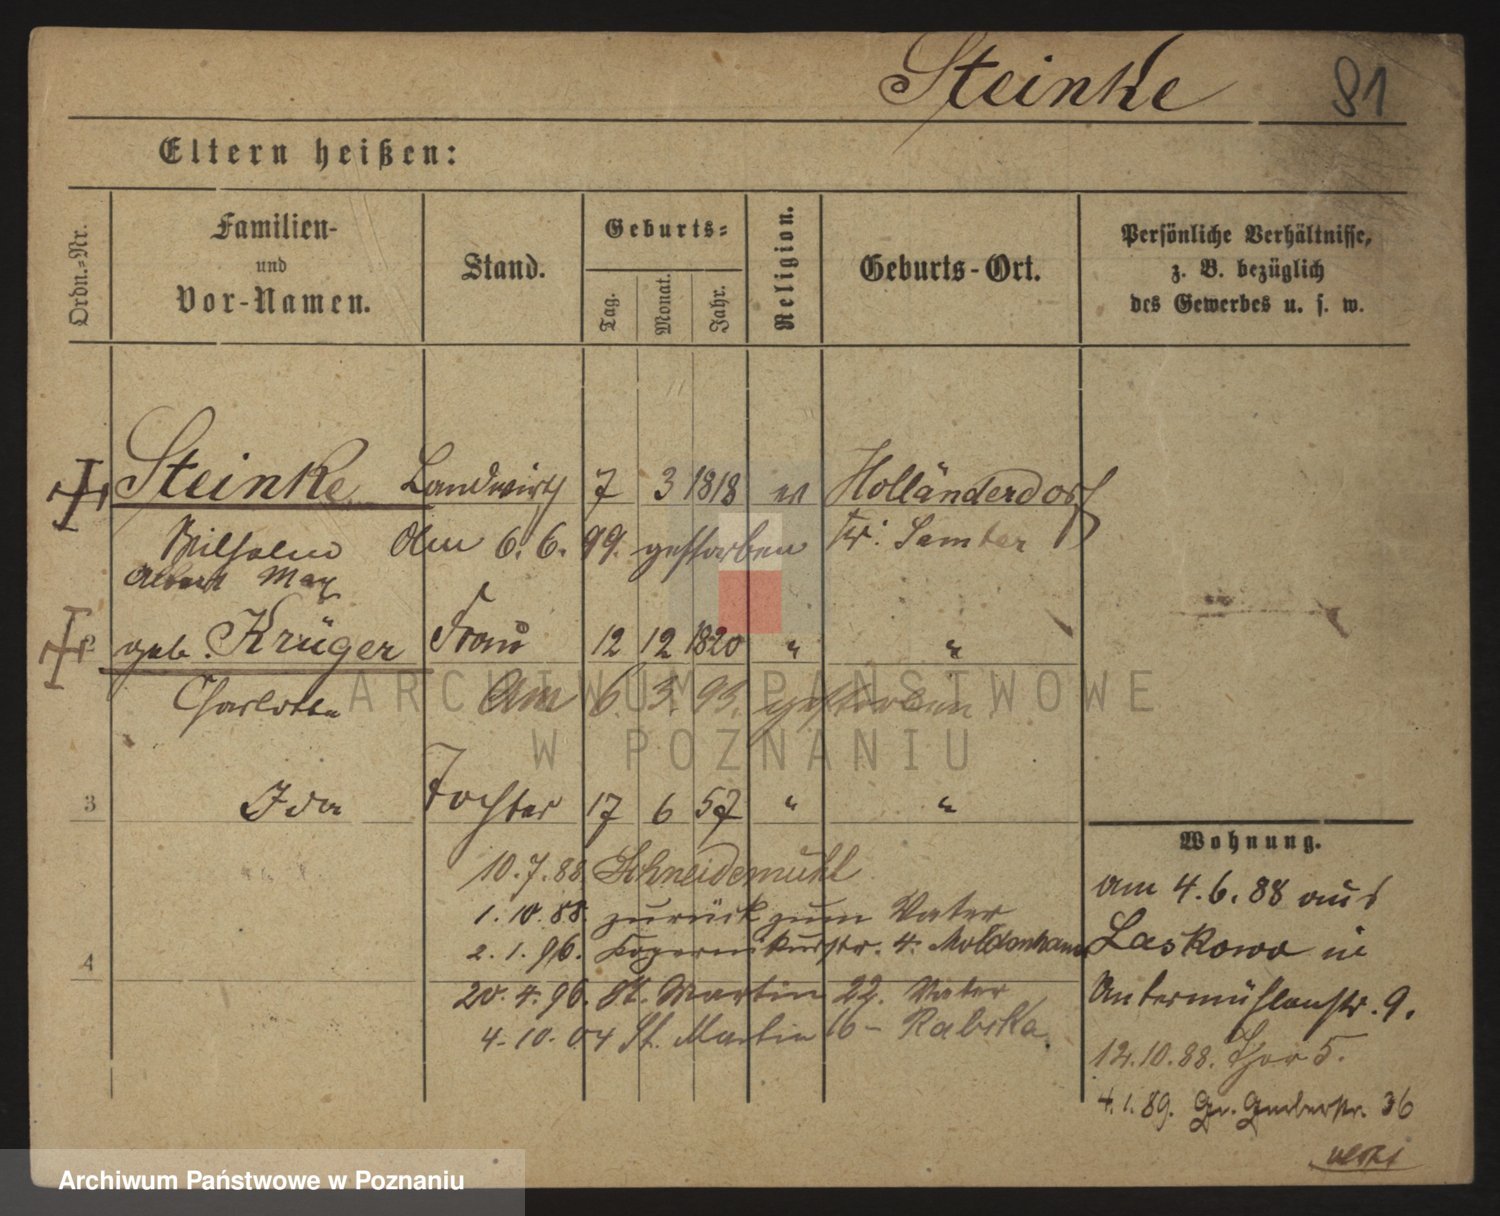 Steinke 81
Eltern heißen:
Ordn.-Nr.
Familien-
und
Vor-Namen.
Stand.
Geburts-
Tag.
Monat.
Jahr.
Religion.
Geburts-Ort.
Persönliche Verhältnisse,
z. B. bezüglich
des Gewerbes u. s. w.
Steinke Landwirth 7 3 1818 ev Holländerdorf
Wilhelm Am 6. 6. 99. gestorben Kr: Samter
Albert Max
2 geb. Krüger Frau 12 12 1820 " "
Charlotte Am 6. 3. 93. gestorben.
ARCHIWUM PAŃSTWOWE
W POZNANIU
3 Ida Tochter 17 6 57 " "
10.7.88 Schneidemühl
1.10.88. zurück zum Vater
2.1.96. Kopernikusstr. 4. Moldenhauer
4
20.4.96. St. Martin 22. Vater
4.10.04 St. Martin 16 - Rabska.
Wohnung.
Am 4.6.88 aus
Laskowo in
Untermühlenstr. 9.
12.10.88. Thor 5.
4.1.89. Gr. Gerberstr. 36
Archiwum Państwowe w Poznaniu